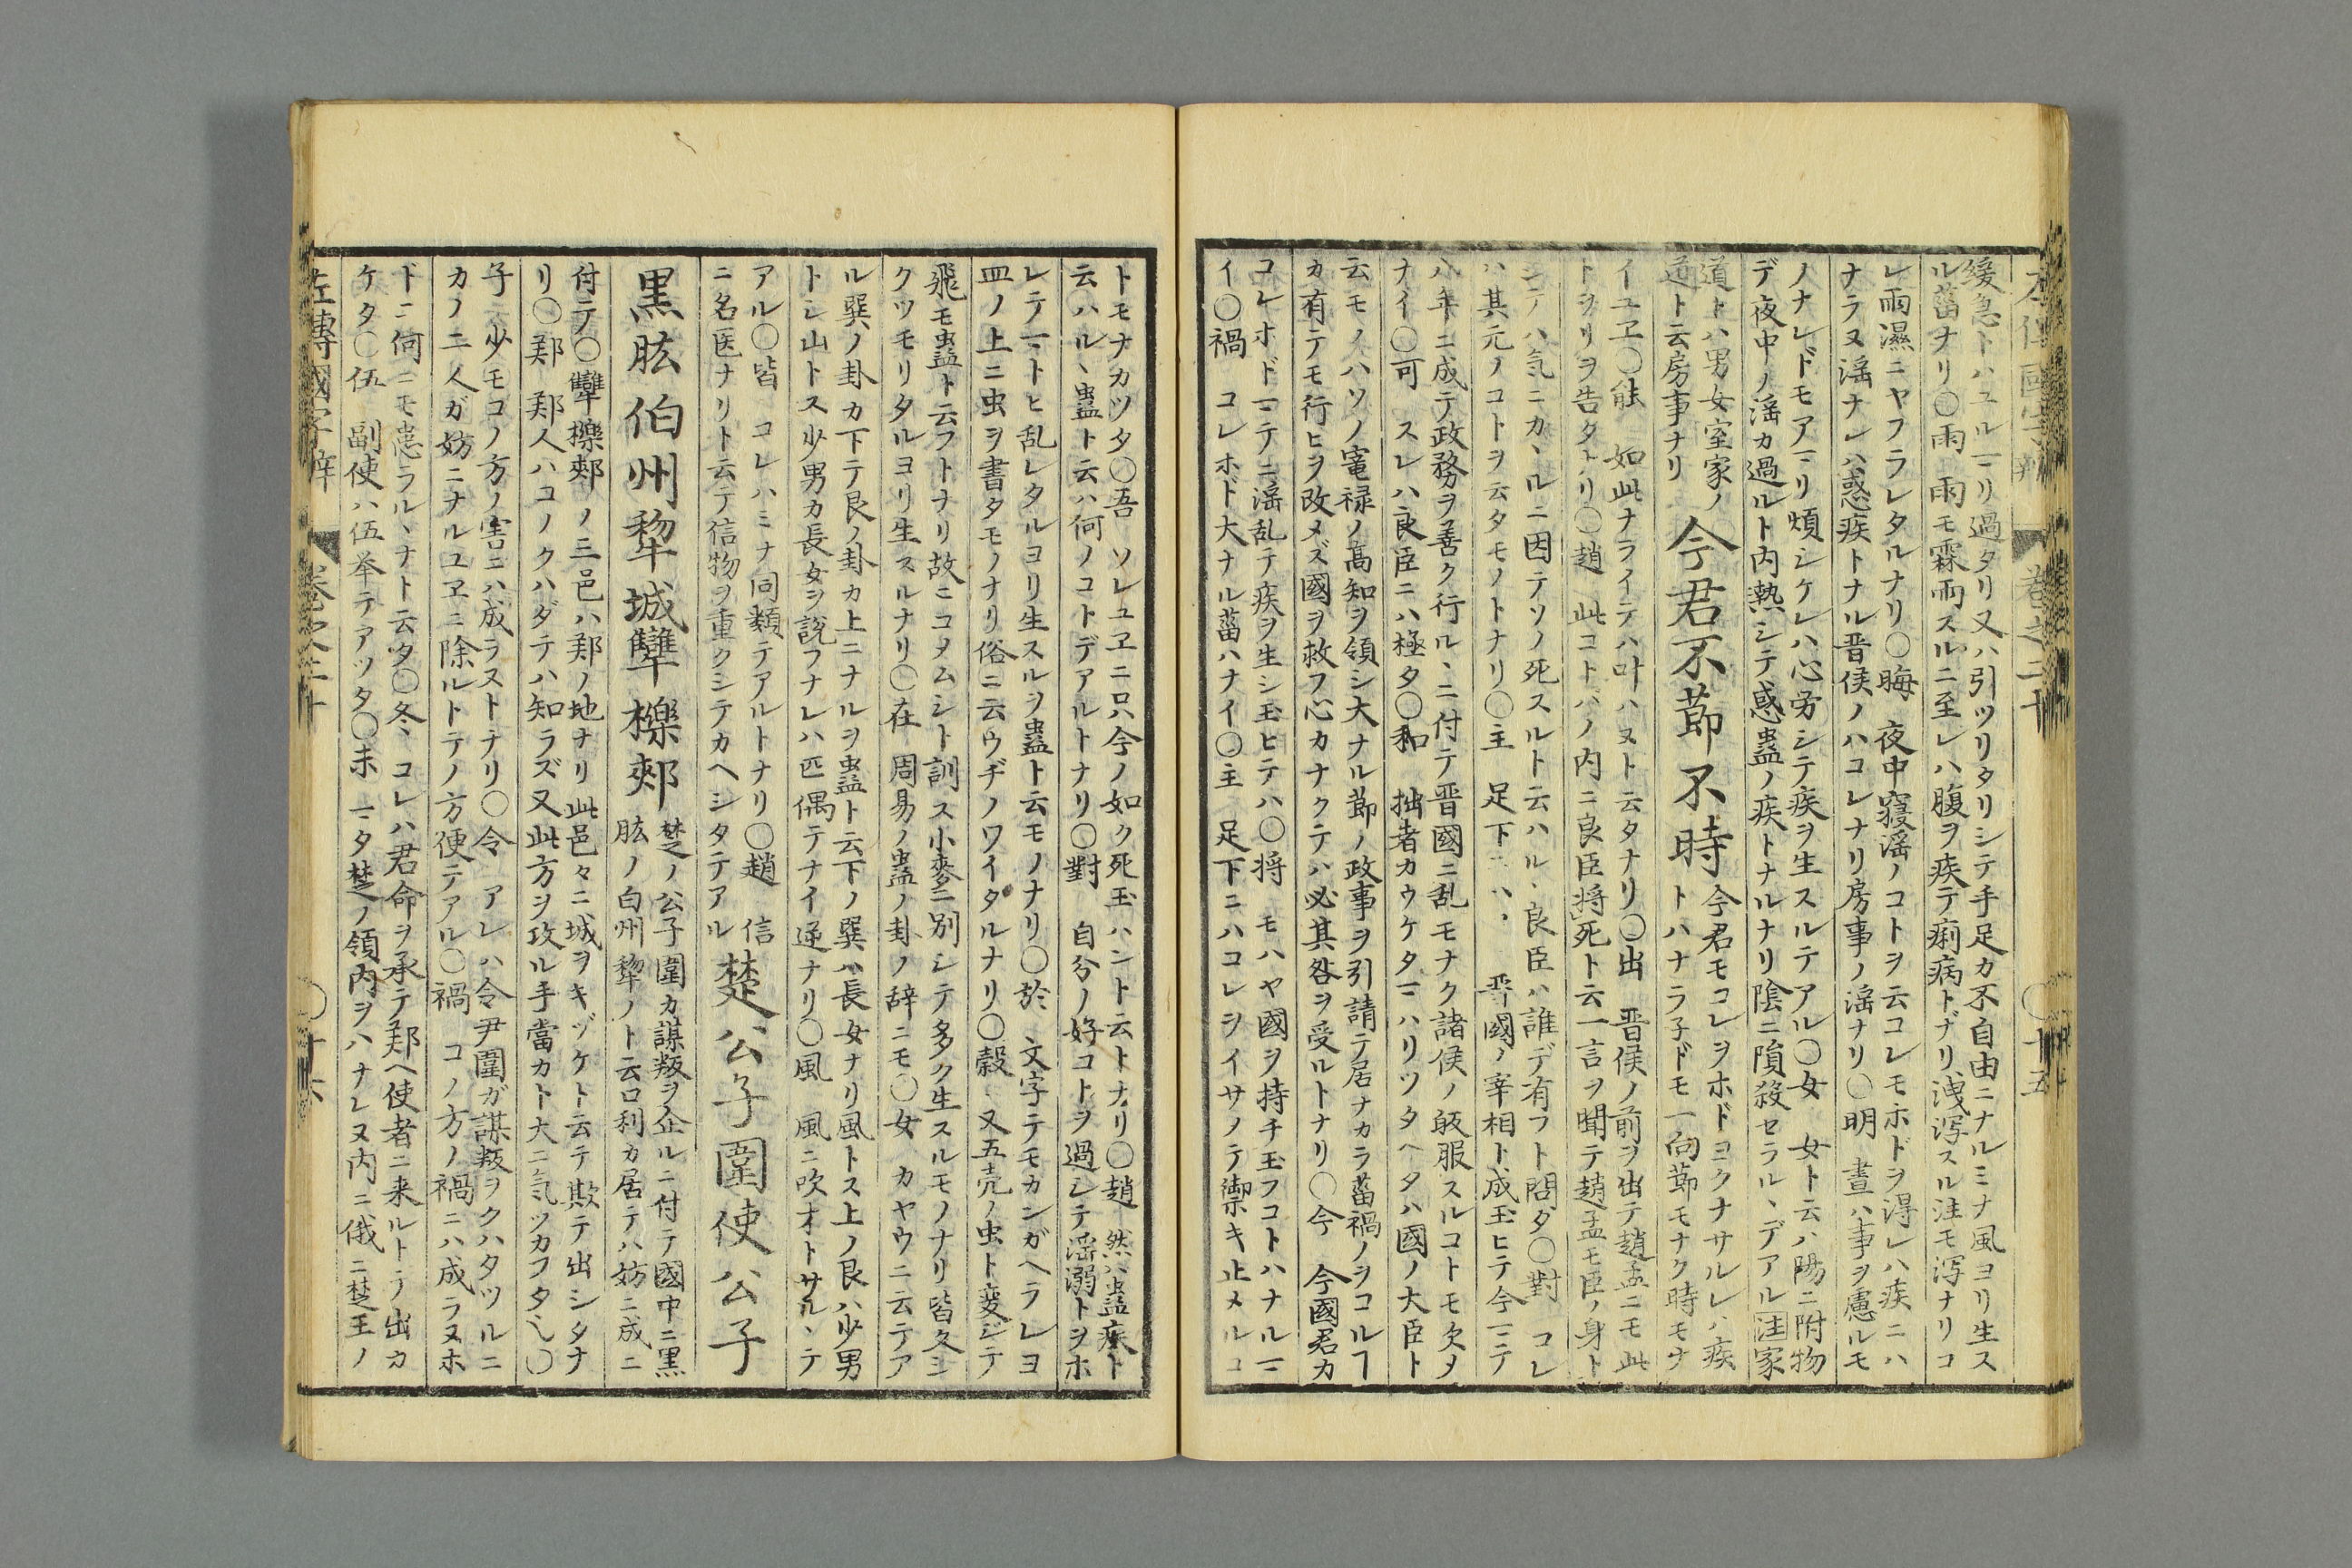 緩急トハユルマリ過タリ又ハ引ツリタリシテ手足カ不自由ニナルミナ風ヨリ生ス
ル菑ナリ〇雨 雨モ霖雨スルニ至レハ腹ヲ疾テ痢病トナリ洩瀉スル注モ瀉ナリコ
レ雨濕ニヤフラレタルナリ〇晦 夜中寝滛ノコトヲ云コレモホドヲ得レハ疾ニハ
ナラヌ滛ナレハ惑疾トナル晋侯ノハコレナリ房事ノ滛ナリ〇明 晝ハ事ヲ慮ルモ
ノナレドモアマリ煩シケレハ心労シテ疾ヲ生スルテアル〇女 女ト云ハ陽ニ附物
デ夜中ノ滛カ過ルト内熱シテ惑蠱ノ疾トナルナリ陰ニ隕殺セラルヽデアル注家
道トハ男女室家ノ
道ト云房事ナリ
今君不節不時
今君モコレヲホドヨクナサルレハ疾
トハナラ子ドモ一向節モナク時モナ
イユヱ〇能 如此ナライテハ叶ハヌト云タナリ〇出 晋侯ノ前ヲ出テ趙孟ニモ此
トヲリヲ告タトリ〇趙 此コトバノ内ニ良臣将死ト云一言ヲ聞テ趙孟モ臣ノ身ト
シテハ気ニカヽルニ因テソノ死スルト云ハルヽ良臣ハ誰デ有フト問タ〇對 コレ
ハ其元ノコトヲ云タモノトナリ〇主 足下ニハ 晋國ノ宰相ト成玉ヒテ今マテ
八年ニ成テ政務ヲ善ク行ルヽニ付テ晋國ニ乱モナク諸侯ノ皈服スルコトモ欠メ
ナイ〇可 スレハ良臣ニハ極タ〇和 拙者カウケタマハリツタヘタハ國ノ大臣ト
云モノハソノ寵禄ノ高知ヲ領シ大ナル節ノ政事ヲ引請テ居ナカラ菑禍ノヲコルヿ
カ有テモ行ヒヲ改メズ國ヲ救フ心カナクテハ必其咎ヲ受ルトナリ〇今 今國君カ
コレホドマテニ滛乱テ疾ヲ生シ玉ヒテハ〇将 モハヤ國ヲ持チ玉フコトハナルマ
イ〇禍 コレホド大ナル菑ハナイ〇主 足下ニハコレヲイサメテ禦キ止メルコ
トモナカツタ〇吾 ソレユヱニ只今ノ如ク死玉ハント云トナリ〇趙 然ハ蠱疾ト
云ハルヽ蠱ト云ハ何ノコトデアルトナリ〇對 自分ノ好コトヲ過シテ滛溺トヲホ
レテマトヒ乱レタルヨリ生スルヲ蠱ト云モノナリ〇於 文字テモカンガヘラレヨ
皿ノ上ニ虫ヲ書タモノナリ俗ニ云ウヂノワイタルナリ〇穀 又五穀ノ虫ト変ジテ
飛モ蠱ト云フトナリ故ニコメムシト訓ス小麥ニ別シテ多ク生スルモノナリ皆久シ
クツモリタルヨリ生スルナリ〇在 周易ノ蠱ノ卦ノ辞ニモ〇女 カヤウニ云テア
ル巽ノ卦カ下テ艮ノ卦カ上ニナルヲ蠱ト云下ノ巽ハ長女ナリ風トス上ノ艮ハ少男
トシ山トス少男カ長女ヲ説フナレハ匹偶テナイ逆ナリ〇風 風ニ吹オトサルヽテ
アル〇皆 コレハミナ同類テアルトナリ〇趙 信
ニ名医ナリト云テ信物ヲ重クシテカヘシタテアル
楚公子圍使公子
黒肱伯州犂城犫櫟郟
楚ノ公子圍カ謀叛ヲ企ルニ付テ國中ニ黒
肱ノ白州犂ノト云ロ利カ居テハ妨ニ成ニ
付テ〇犫櫟郟ノ三邑ハ鄭ノ地ナリ此邑々ニ城ヲキヅケト云テ欺テ出シタナ
リ〇鄭 鄭人ハコノクハダテハ知ラズ又此方ヲ攻ル手當カト大ニ氣ツカフタ〇
子ニ少モコノ方ノ害ニハ成ラストナリ〇令 アレハ令尹圍ガ謀叛ヲクハタツルニ
カノ二人ガ妨ニナルユヱニ除ルトテノ方便テアル〇禍 コノ方ノ禍ニハ成ラヌホ
ドニ何ニモ患ラルヽナト云タ〇冬 コレハ君命ヲ承テ鄭ヘ使者ニ来ルトテ出カ
ケタ〇伍 副使ハ伍挙テアツタ〇未 マタ楚ノ領内ヲハナレヌ内ニ俄ニ楚王ノ
左傳國字辨 巻之二十 〇十六